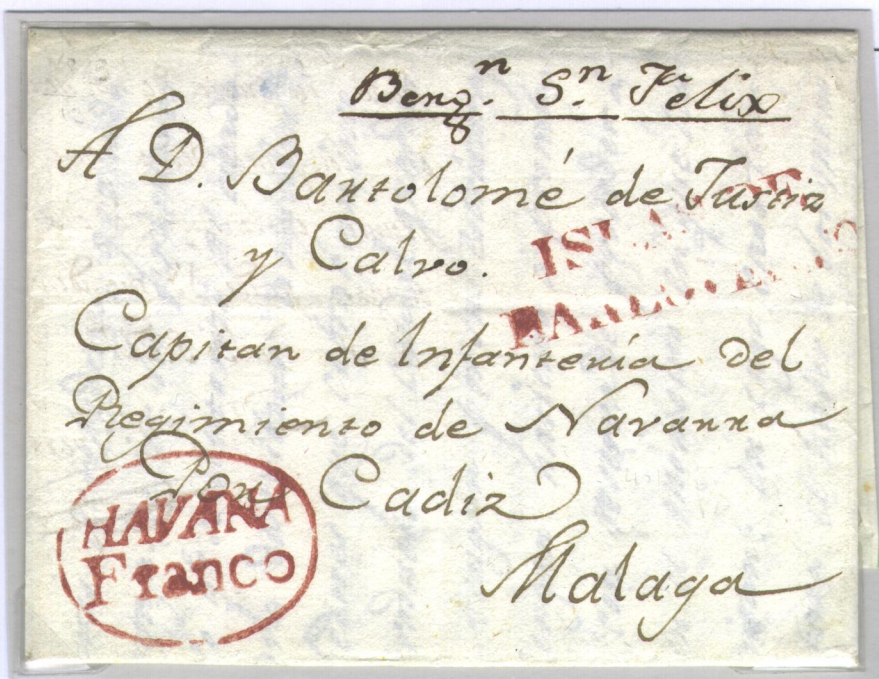 Bergⁿ. Sⁿ. Felix
A D. Bartolomé de Justiz
y Calvo.
ISLAS DE
BARLOVENTO
Capitan de Infantería del
Regimiento de Navarra
Por Cadiz
Malaga
HAVANA
Franco